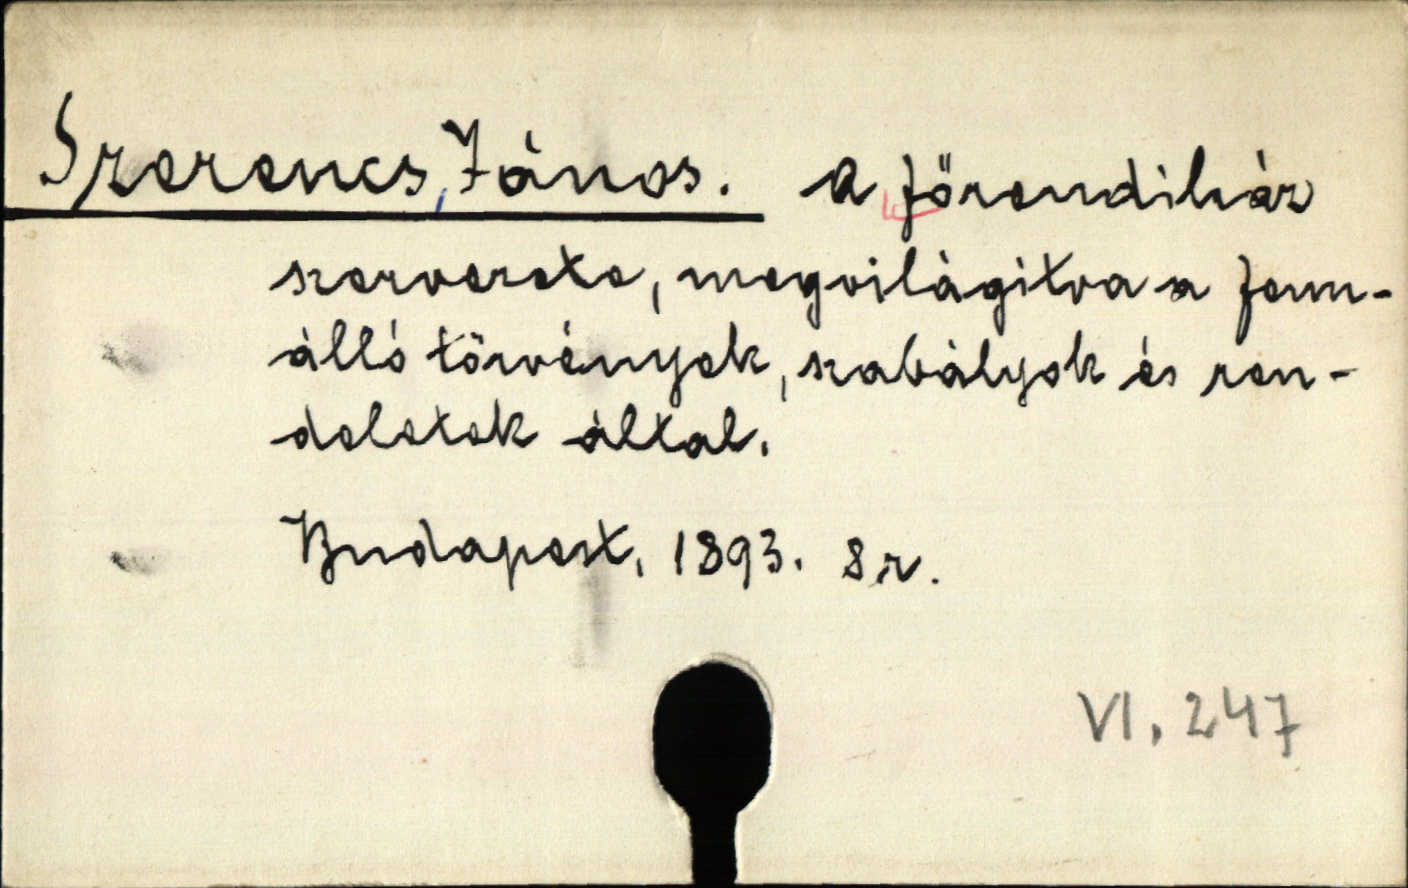 Szerencs, János. A főrendiház
szervezete, megvilágitva a fenn-
álló törvények, szabályok és ren-
deletek által.
Budapest, 1893. 8r.
VI. 247